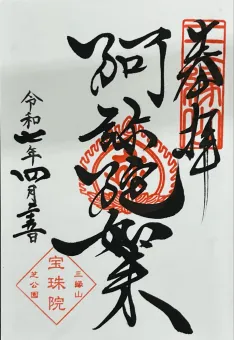 奉拝
阿弥陀如来
令和七年四月吉日
三縁山
宝珠院
芝公園